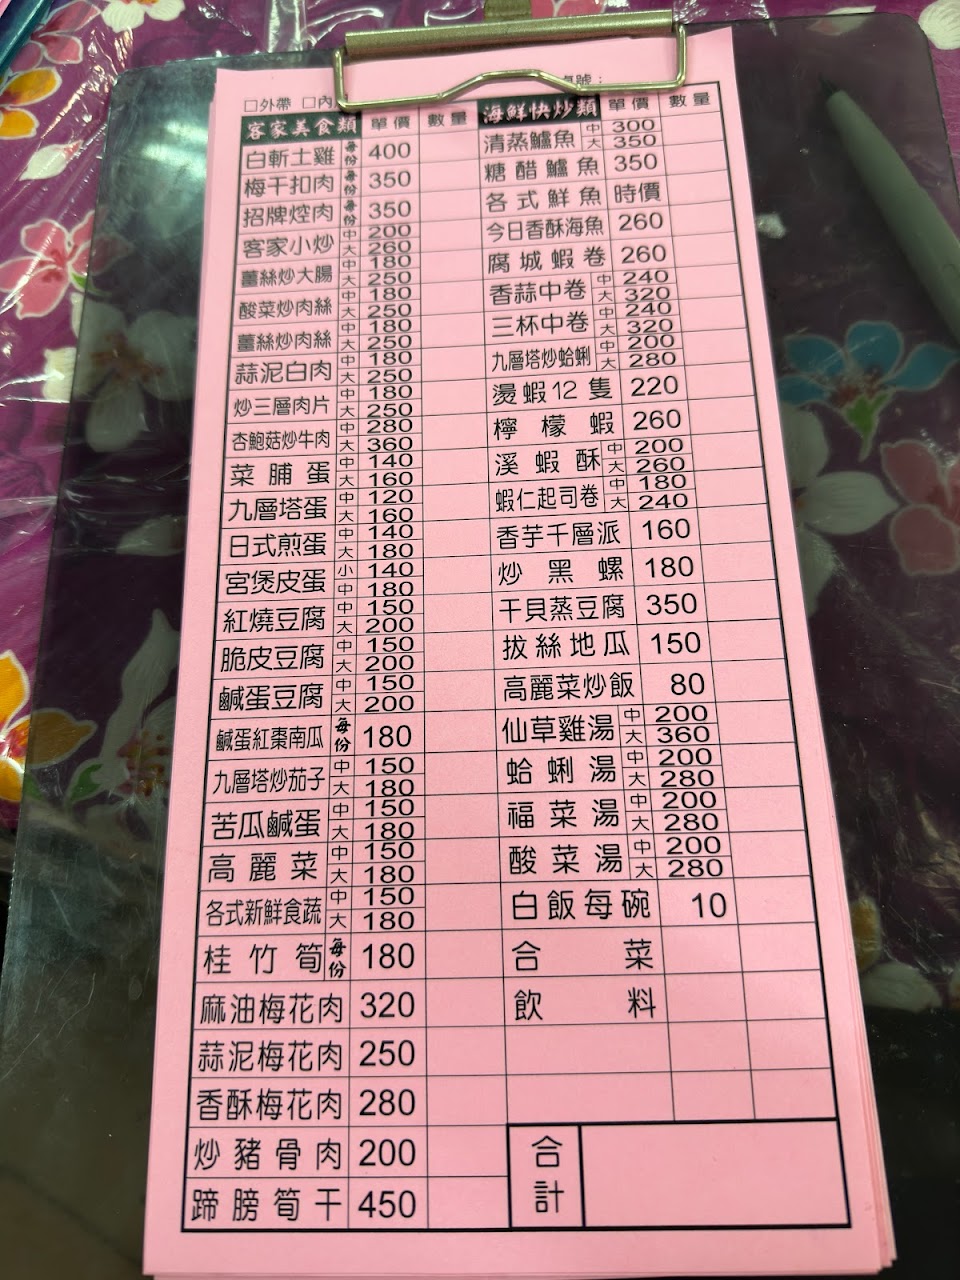 □外帶 □內
桌號：
客家美食類 單價 數量
白斬土雞 每份 400
梅干扣肉 每份 350
招牌焢肉 每份 350
客家小炒 中 200 大 260
薑絲炒大腸 中 180 大 250
酸菜炒肉絲 中 180 大 250
薑絲炒肉絲 中 180 大 250
蒜泥白肉 中 180 大 250
炒三層肉片 中 180 大 250
杏鮑菇炒牛肉 中 280 大 360
菜脯蛋 中 140 大 160
九層塔蛋 中 120 大 160
日式煎蛋 中 140 大 180
宮煲皮蛋 小 140 中 180
紅燒豆腐 中 150 大 200
脆皮豆腐 中 150 大 200
鹹蛋豆腐 中 150 大 200
鹹蛋紅棗南瓜 每份 180
九層塔炒茄子 中 150 大 180
苦瓜鹹蛋 中 150 大 180
高麗菜 中 150 大 180
各式新鮮食蔬 中 150 大 180
桂竹筍 每份 180
麻油梅花肉 320
蒜泥梅花肉 250
香酥梅花肉 280
炒豬骨肉 200
蹄膀筍干 450
海鮮快炒類 單價 數量
清蒸鱸魚 中 300 大 350
糖醋鱸魚 350
各式鮮魚 時價
今日香酥海魚 260
腐城蝦卷 260
香蒜中卷 中 240 大 320
三杯中卷 中 240 大 320
九層塔炒蛤蜊 中 200 大 280
燙蝦12隻 220
檸檬蝦 260
溪蝦酥 中 200 大 260
蝦仁起司卷 中 180 大 240
香芋千層派 160
炒黑螺 180
干貝蒸豆腐 350
拔絲地瓜 150
高麗菜炒飯 80
仙草雞湯 中 200 大 360
蛤蜊湯 中 200 大 280
福菜湯 中 200 大 280
酸菜湯 中 200 大 280
白飯每碗 10
合菜
飲料
合計